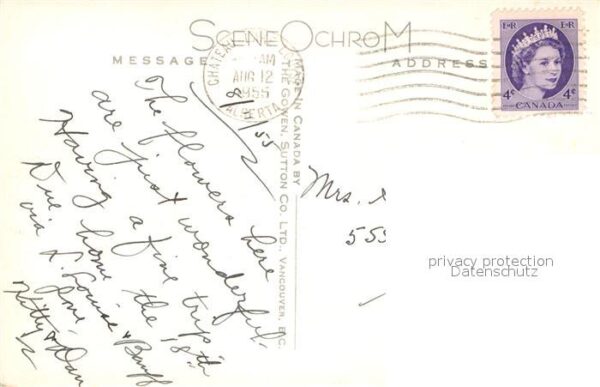 SCENEOCHROM
MESSAGE
ADDRESS
AM
AUG 12
1955
ALBERTA
E R
E R
4¢
CANADA
4¢
MADE IN CANADA BY
THE GOWEN, SUTTON CO. LTD., VANCOUVER, B.C.
8/11/55
The flowers here
are just wonderful.
Having a fine trip
Due home the 18th
via L. Louise & Banff
Love,
Kitty & Dan
Mrs.
555
privacy protection
Datenschutz